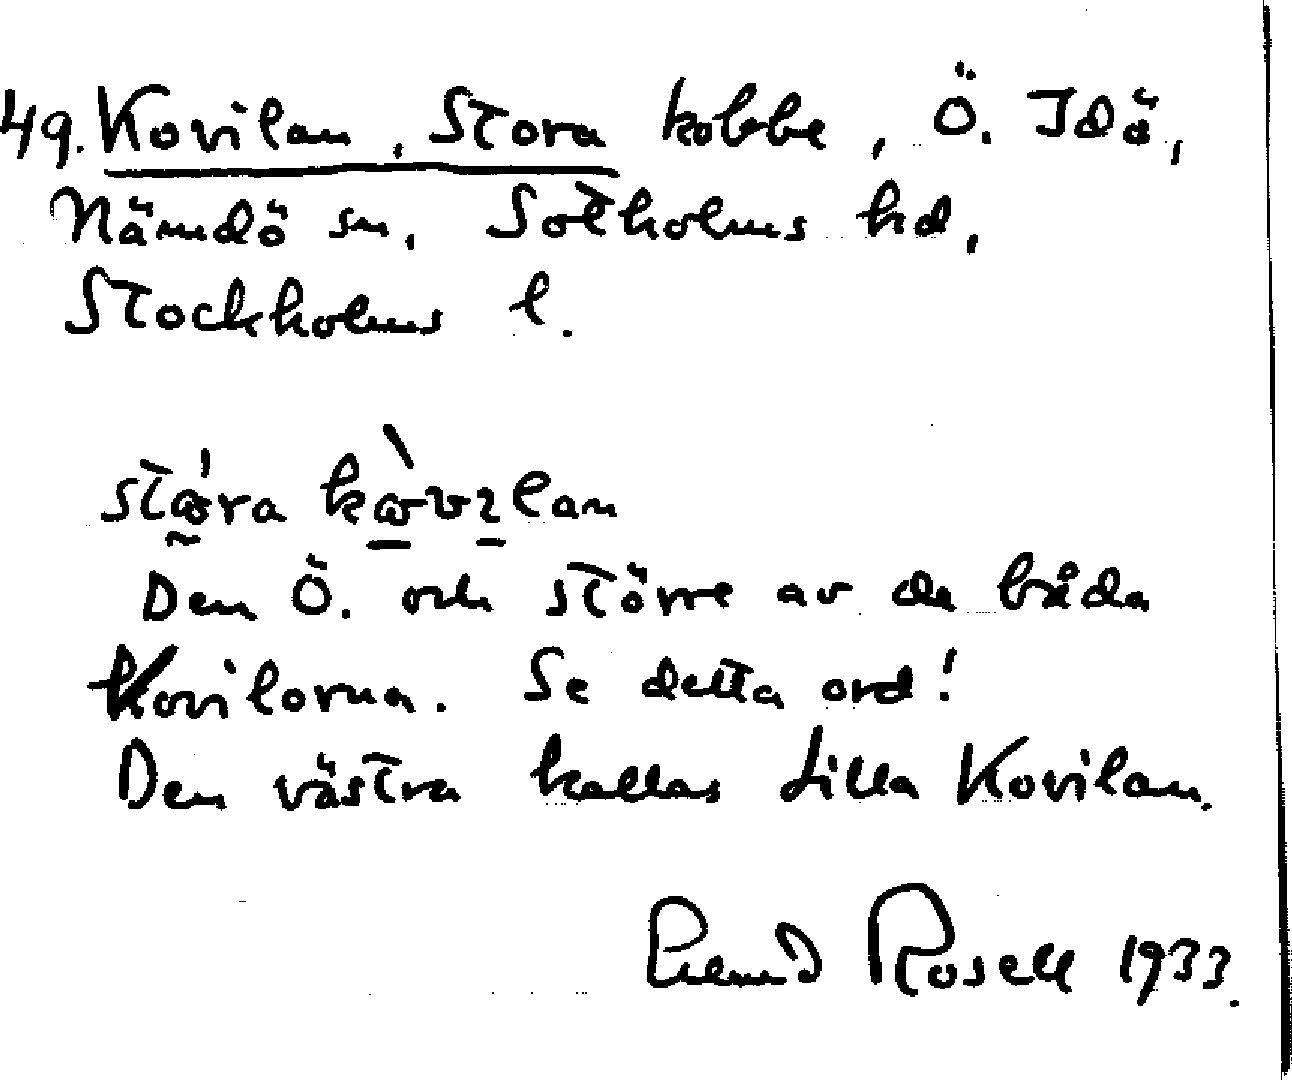 49. Kovilan, Stora kobbe, Ö. Idö,
Nämdö sn, Sotholms hd,
Stockholms l.
Den Ö. och större av de båda
Kovilorna. Se detta ord!
Den västra kallas Lilla Kovilan.
Rosell 1933.